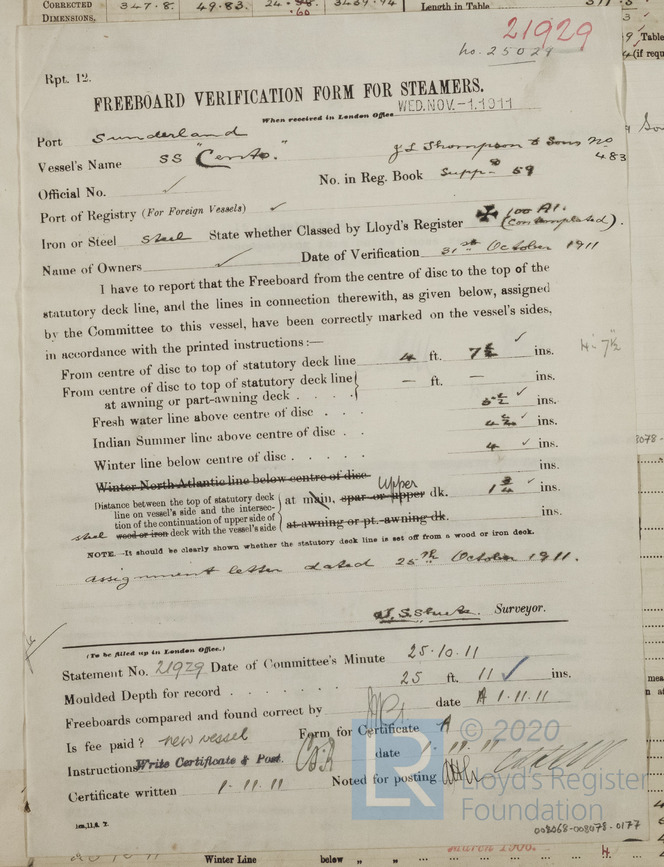 CORRECTED DIMENSIONS, 347.8. 49.83. Length in Table
21929
No. 25029
Rpt. 12.
FREEBOARD VERIFICATION FORM FOR STEAMERS.
When received in London Office WED. NOV. -1. 1911
Port Sunderland
Vessel's Name SS "Cento." J L Thompson & Sons No 483
Official No. ✓ No. in Reg. Book Supp. 59
Port of Registry (For Foreign Vessels) ✓
Iron or Steel Steel State whether Classed by Lloyd's Register ✠ 100 A1. (Contemplated).
Name of Owners ✓ Date of Verification 31st October 1911
I have to report that the Freeboard from the centre of disc to the top of the
statutory deck line, and the lines in connection therewith, as given below, assigned
by the Committee to this vessel, have been correctly marked on the vessel's sides,
in accordance with the printed instructions :—
From centre of disc to top of statutory deck line 4 ft. 7½ ✓ ins.
From centre of disc to top of statutory deck line
at awning or part-awning deck . . . . — ft. — ins.
Fresh water line above centre of disc . . . ✓ ins.
Indian Summer line above centre of disc . . ✓ ins.
Winter line below centre of disc . . . . 4 ✓ ins.
Winter North Atlantic line below centre of disc ins.
Upper
Distance between the top of statutory deck
line on vessel's side and the intersec-
tion of the continuation of upper side of
steel wood or iron deck with the vessel's side
at main, spar or upper dk. 1¾ ✓ ins.
at awning or pt.-awning dk. ins.
NOTE.—It should be clearly shown whether the statutory deck line is set off from a wood or iron deck.
Assignment letter dated 25th October 1911.
Surveyor.
(To be filled up in London Office.)
Statement No. 21929 Date of Committee's Minute 25.10.11
Moulded Depth for record . . . . . . . 25 ft. 11 ✓ ins.
Freeboards compared and found correct by date A 1.11.11
Is fee paid? new vessel Form for Certificate A
Instructions Write Certificate & Post. date 1.11.11
Certificate written 1.11.11 Noted for posting
© 2020
Lloyd's Register
Foundation
LR
008068-008078-0177
Winter Line below „ „